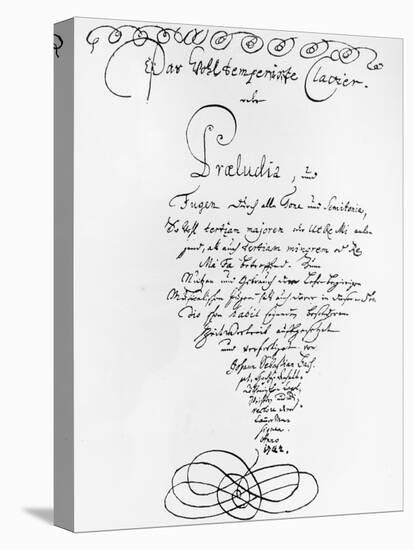 Das Wohltemperirte Clavier.
oder
Præludia, und
Fugen durch alle Tone und Semitonia,
So wohl tertiam majorem oder Ut Re Mi anlan-
gend, als auch tertiam minorem oder Re
Mi Fa betreffend. Zum
Nutzen und Gebrauch der Lehr-begierigen
Musicalischen Jugend, als auch derer in diesem stu-
dio schon habil seyenden besonderem
ZeitVertreib auffgesetzet
und verfertiget von
Johann Sebastian Bach.
p. t.
Capel-
Meistern und Di-
rectore derer
Anno
1722.